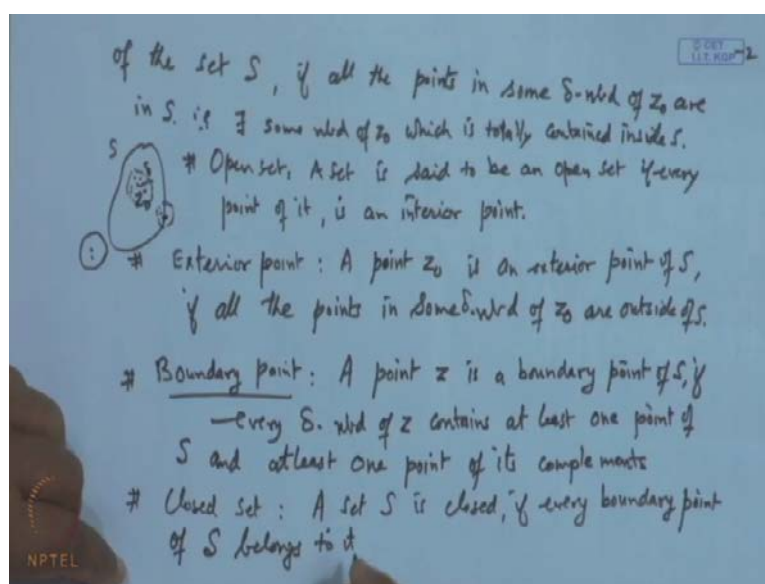 © CET
I.I.T. KGP
-2
of the set S, if all the points in some δ-nbd of z₀ are
in S. i.e ∃ some nbd of z₀ which is totally contained inside S.
S
# Open set. A set is said to be an open set if every
point of it, is an interior point.
z₀
# Exterior point : A point z₀ is an exterior point of S,
if all the points in some δ-nbrd of z₀ are outside of S.
# Boundary point : A point z is a boundary point of S, if
every δ-nbd of z contains at least one point of
S and atleast one point of its complements
# Closed set : A set S is closed, if every boundary point
of S belongs to it
NPTEL